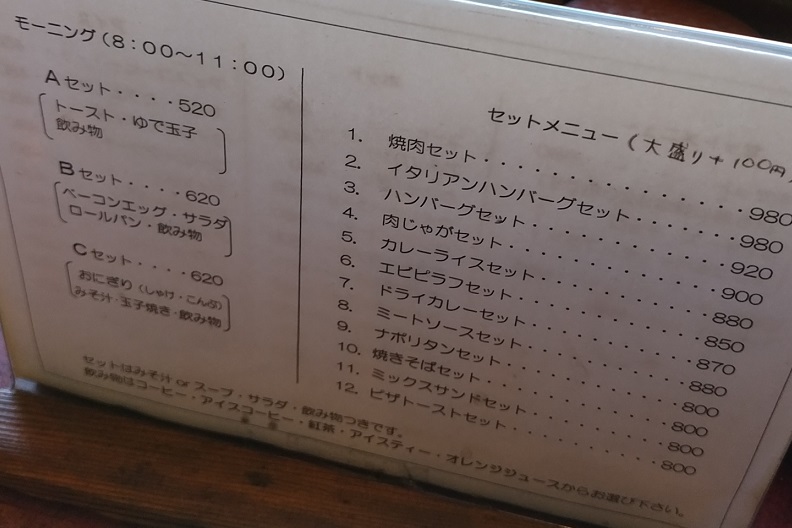 モーニング(8:00〜11:00)
Aセット・・・・520
トースト・ゆで玉子
飲み物
Bセット・・・・620
ベーコンエッグ・サラダ
ロールパン・飲み物
Cセット・・・・620
おにぎり(しゃけ・こんぶ)
みそ汁・玉子焼き・飲み物
セットメニュー(大盛り+100円)
1. 焼肉セット・・・・・・・・・・・・・・980
2. イタリアンハンバーグセット・・・・・・980
3. ハンバーグセット・・・・・・・・・・・920
4. 肉じゃがセット・・・・・・・・・・・・900
5. カレーライスセット・・・・・・・・・・880
6. エビピラフセット・・・・・・・・・・・850
7. ドライカレーセット・・・・・・・・・・870
8. ミートソースセット・・・・・・・・・・880
9. ナポリタンセット・・・・・・・・・・・800
10. 焼きそばセット・・・・・・・・・・・・800
11. ミックスサンドセット・・・・・・・・・800
12. ピザトーストセット・・・・・・・・・・800
セットはみそ汁 or スープ・サラダ・飲み物つきです。
飲み物はコーヒー・アイスコーヒー・紅茶・アイスティー・オレンジジュースからお選び下さい。